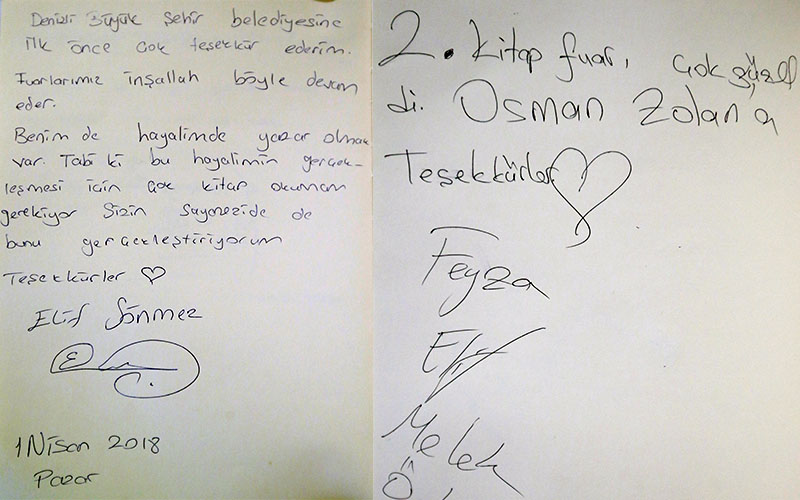 Denizli Büyük Şehir belediyesine
ilk önce çok teşekkür ederim.
Fuarlarımız inşallah böyle devam
eder.
Benim de hayalimde yazar olmak
var. Tabi ki bu hayalimin gerçek-
leşmesi için çok kitap okumam
gerekiyor Sizin sayenizide de
bunu gerçekleştiriyorum
Teşekkürler ♡
Elif Sönmez
1 Nisan 2018
Pazar
2. Kitap fuarı, çok güzel
di. Osman Zolan'a
Teşekkürler ♡
Feyza
Elif
Melek
Ö